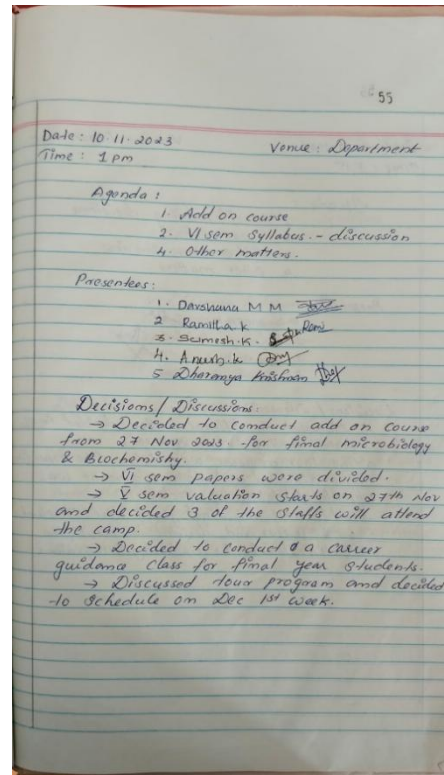 55
Date : 10.11.2023 Venue : Department
Time : 1 pm
Agenda :
1. Add on course
2. VI sem Syllabus. - discussion
4. Other matters.
Presentees :
1. Darshana M M
2 Ramitha.k
3. Sumesh.K.
4. Anush.k
5 Dharanya Krishnan
Decisions / Discussions :
→ Decided to conduct add on course
from 27 Nov 2023. for final microbiology
& Biochemishy.
→ VI sem papers were divided.
→ V sem valuation starts on 27th Nov
and decided 3 of the staffs will attend
the camp.
→ Decided to conduct a career
guidance class for final year students.
→ Discussed tour program and decided
to schedule on Dec 1st week.